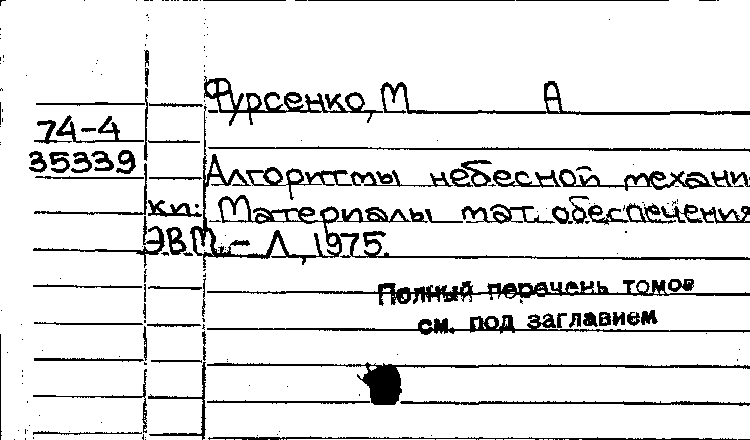 Фурсенко, М А
74-4
35339
Алгоритмы небесной механи
кн: Материалы мат. обеспечения
ЭВМ. - Л, 1975.
Полный перечень томов
см. под заглавием